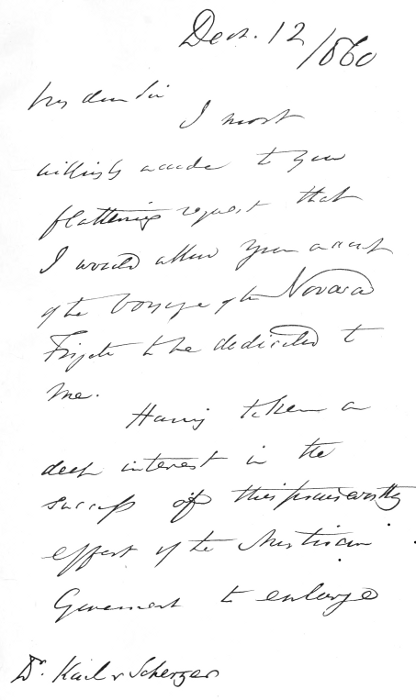 Dec. 12 /860
My dear Sir
I most
willingly accede to your
flattering request that
I would allow your account
of the Voyage of the Novara
Frigate to be dedicated to
me.
Having taken a
deep interest in the
success of this praiseworthy
effort of the Austrian
Government to enlarge
Dr. Karl v Scherzer